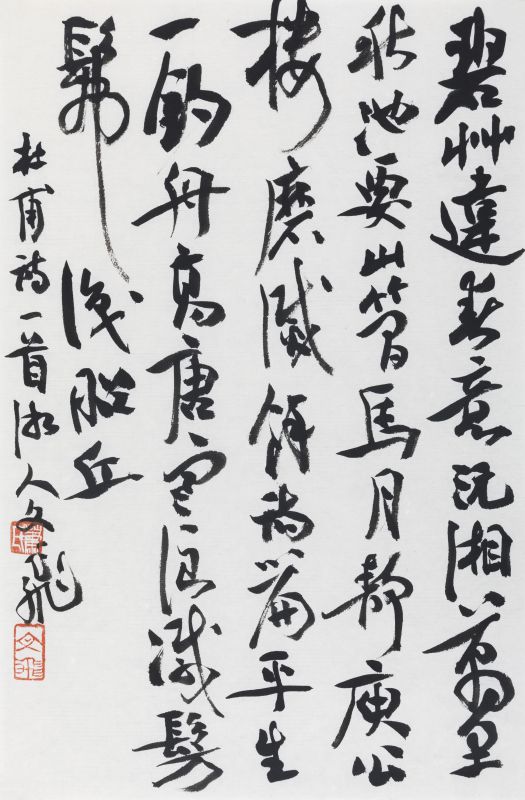 碧艸違春意沅湘萬里
秋池要山簡馬月靜庾公
樓磨滅餘詩篇平生
一釣舟高唐寒浪減髣
髴識昭丘
杜甫詩一首湘人文飛
文飛